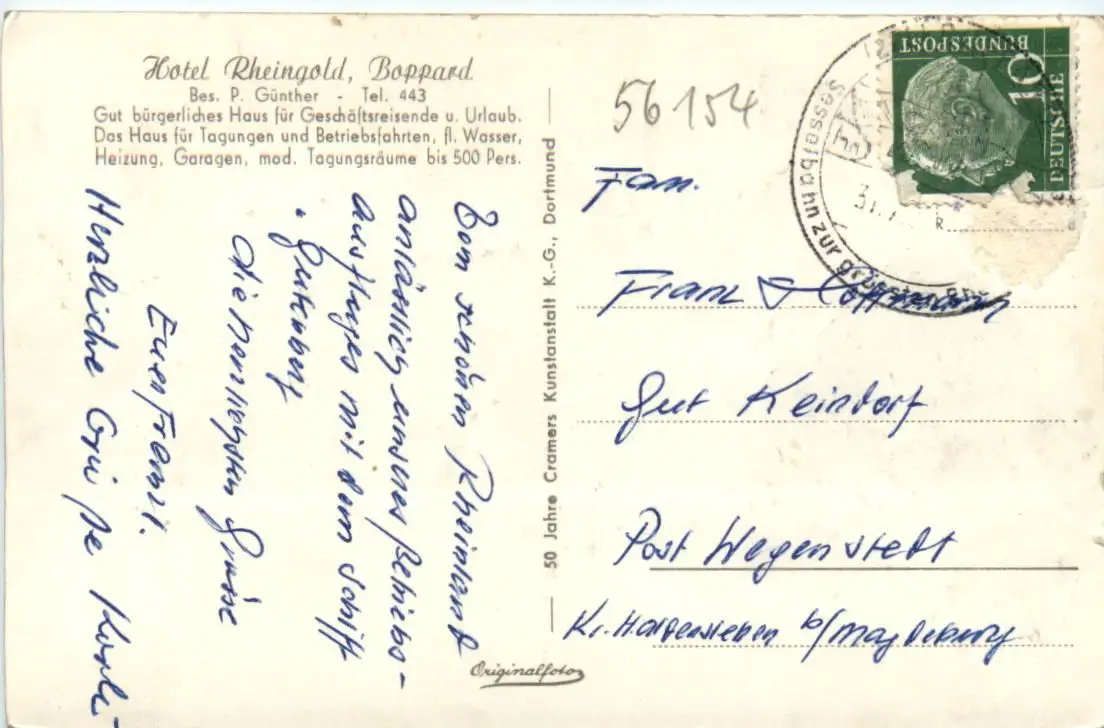 Hotel Rheingold, Boppard
Bes. P. Günther - Tel. 443
Gut bürgerliches Haus für Geschäftsreisende u. Urlaub.
Das Haus für Tagungen und Betriebsfahrten, fl. Wasser,
Heizung, Garagen, mod. Tagungsräume bis 500 Pers.
Vom schönen Rheinland
anlässlich unseres Betriebs-
ausfluges mit dem Schiff
"Gutenberg
die herzlichsten Grüsse
Euer Franz.
Herzliche Grüße
50 Jahre Cramers Kunstanstalt K.-G., Dortmund
Originalfoto
56154
DEUTSCHE
BUNDESPOST
10
Sesselbahn zur
31.
Fam.
Franz Hoffmann
Gut Keindorf
Post Wegenstedt
Kr. Haldensleben b/Magdeburg